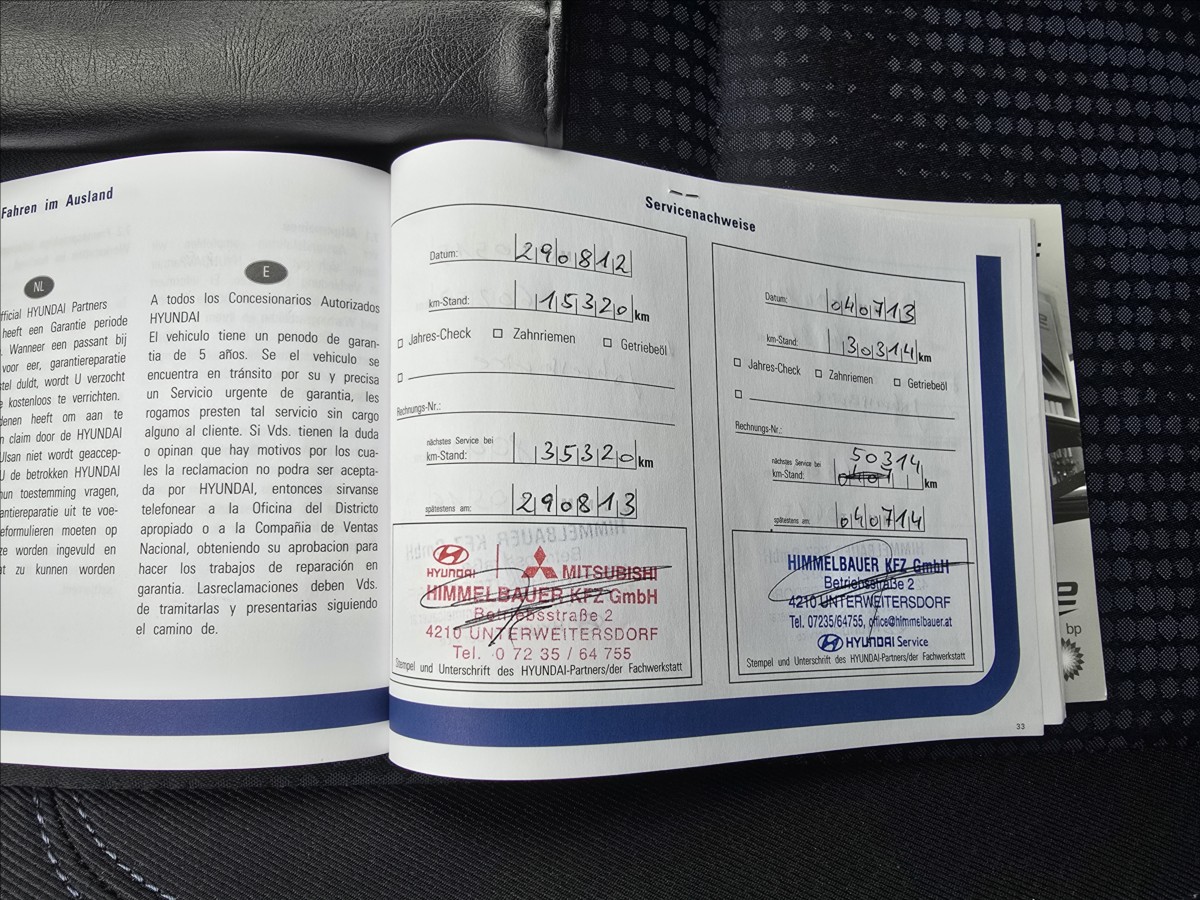 Fahren im Ausland
NL
fficial HYUNDAI Partners
heeft een Garantie periode
. Wanneer een passant bij
voor eer, garantiereparatie
stel duldt, wordt U verzocht
kostenloos te verrichten.
denen heeft om aan te
n claim door de HYUNDAI
Ulsan niet wordt geaccep-
U de betrokken HYUNDAI
un toestemming vragen,
antiereparatie uit te voe-
eformulieren moeten op
ze worden ingevuld en
at zu kunnen worden
E
A todos los Concesionarios Autorizados
HYUNDAI
El vehiculo tiene un penodo de garan-
tia de 5 años. Se el vehiculo se
encuentra en tránsito por su y precisa
un Servicio urgente de garantia, les
rogamos presten tal servicio sin cargo
alguno al cliente. Si Vds. tienen la duda
o opinan que hay motivos por los cua-
les la reclamacion no podra ser acepta-
da por HYUNDAI, entonces sirvanse
telefonear a la Oficina del Districto
apropiado o a la Compañia de Ventas
Nacional, obteniendo su aprobacion para
hacer los trabajos de reparación en
garantia. Lasreclamaciones deben Vds.
de tramitarlas y presentarias siguiendo
el camino de.
Servicenachweise
Datum: 290812
km-Stand: 15320 km
Jahres-Check Zahnriemen Getriebeöl
Rechnungs-Nr.:
nächstes Service bei
km-Stand: 35320 km
spätestens am: 290813
HYUNDAI MITSUBISHI
HIMMELBAUER KFZ GmbH
Betriebsstraße 2
4210 UNTERWEITERSDORF
Tel. 0 72 35 / 64 755
Stempel und Unterschrift des HYUNDAI-Partners/der Fachwerkstatt
Datum: 040713
km-Stand: 30314 km
Jahres-Check Zahnriemen Getriebeöl
Rechnungs-Nr.:
50314
nächstes Service bei
km-Stand: km
spätestens am: 040714
HIMMELBAUER KFZ GmbH
Betriebsstraße 2
4210 UNTERWEITERSDORF
Tel. 07235/64755, office@himmelbauer.at
HYUNDAI Service
Stempel und Unterschrift des HYUNDAI-Partners/der Fachwerkstatt
33
bp